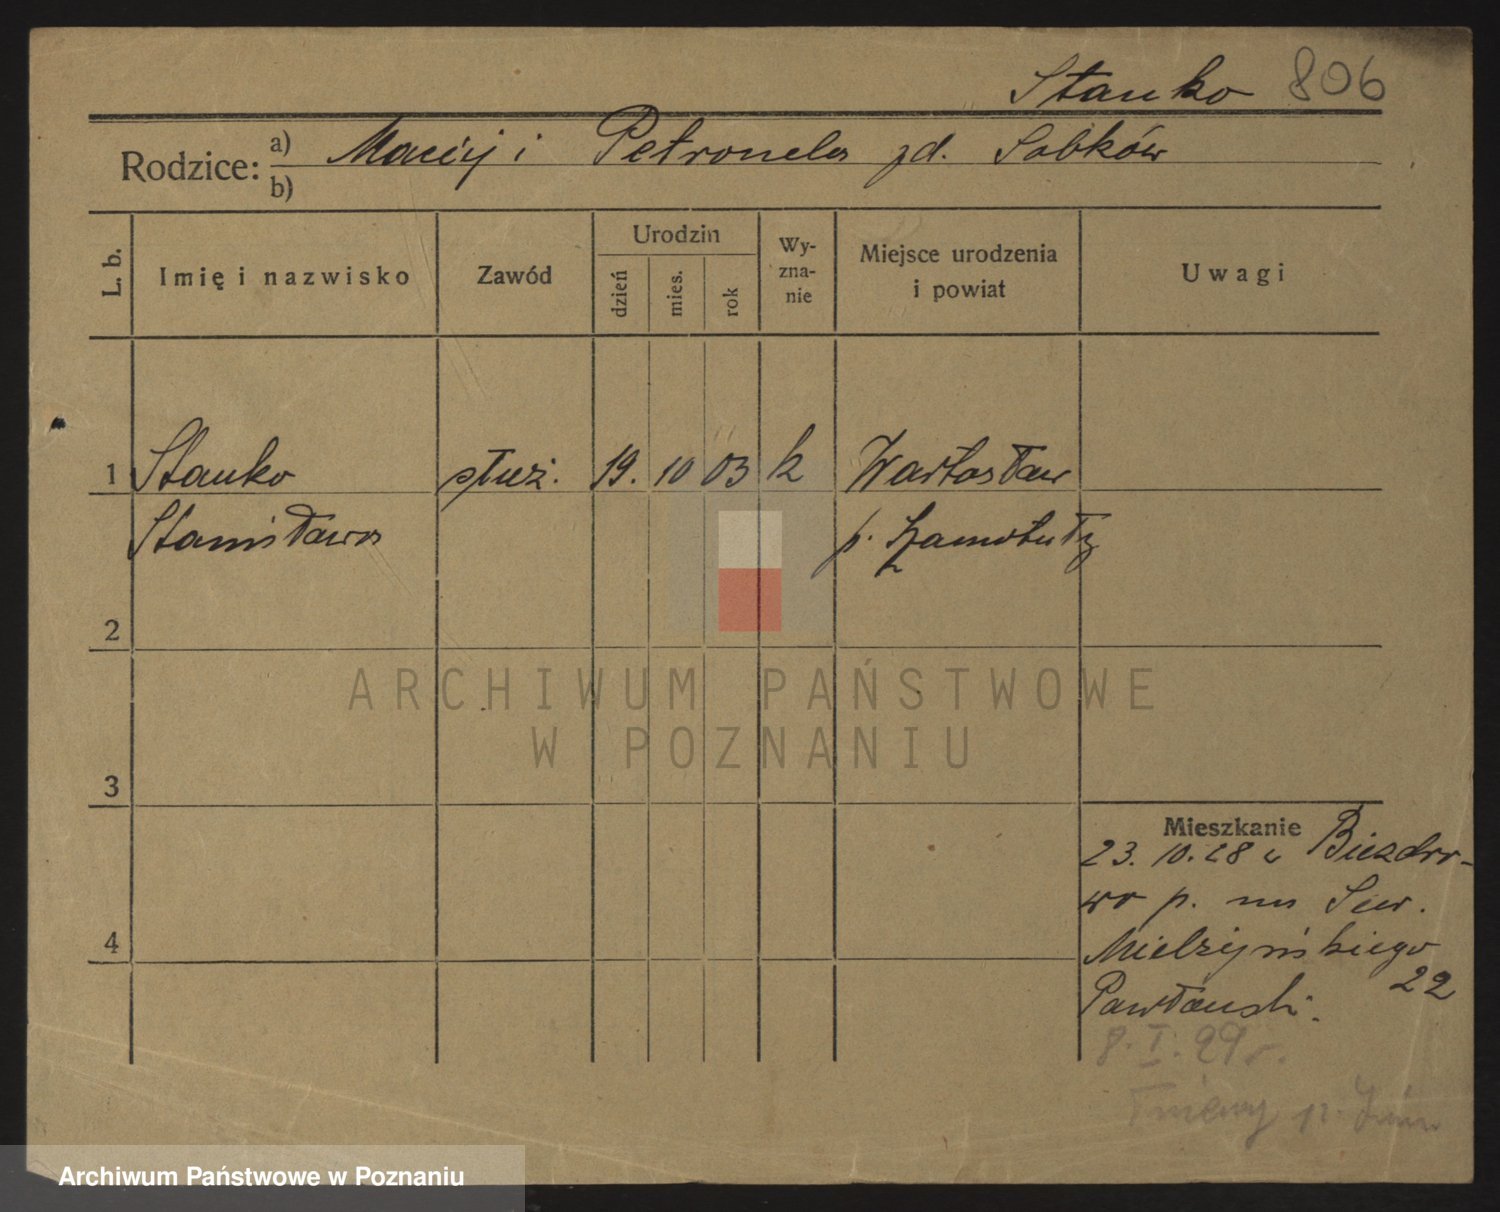 Stanko 806
Rodzice: a) Maciej i Petronela zd. Sobków
b)
L. b.
Imię i nazwisko
Zawód
Urodzin
dzień
mies.
rok
Wy-
zna-
nie
Miejsce urodzenia
i powiat
Uwagi
1 Stanko służ. 19. 10 03 k Wartosław
Stanisława p. Szamotuły
2
3
4
Mieszkanie
23. 10. 28 z Biezdro-
wo p. na Sew.
Mielżyńskiego
22
Pawłowski.
8. I. 29 r.
p.
ARCHIWUM PAŃSTWOWE
W POZNANIU
Archiwum Państwowe w Poznaniu